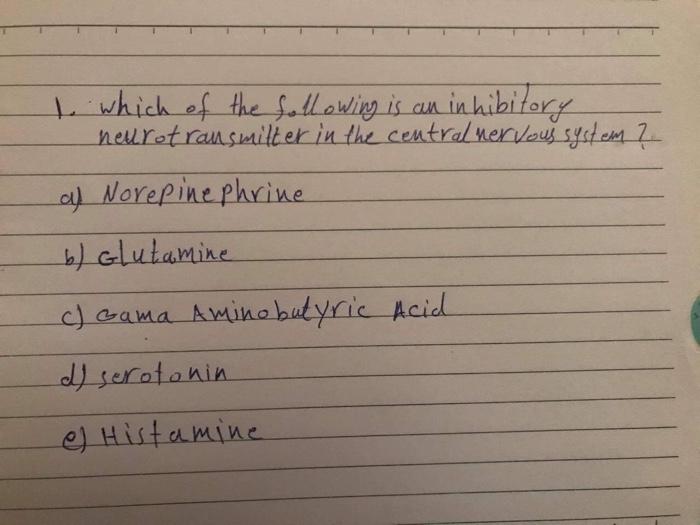 1. which of the following is an inhibitory
neurotransmitter in the central nervous system?
a) Norepinephrine
b) Glutamine
c) Gama Aminobutyric Acid
d) serotonin
e) Histamine